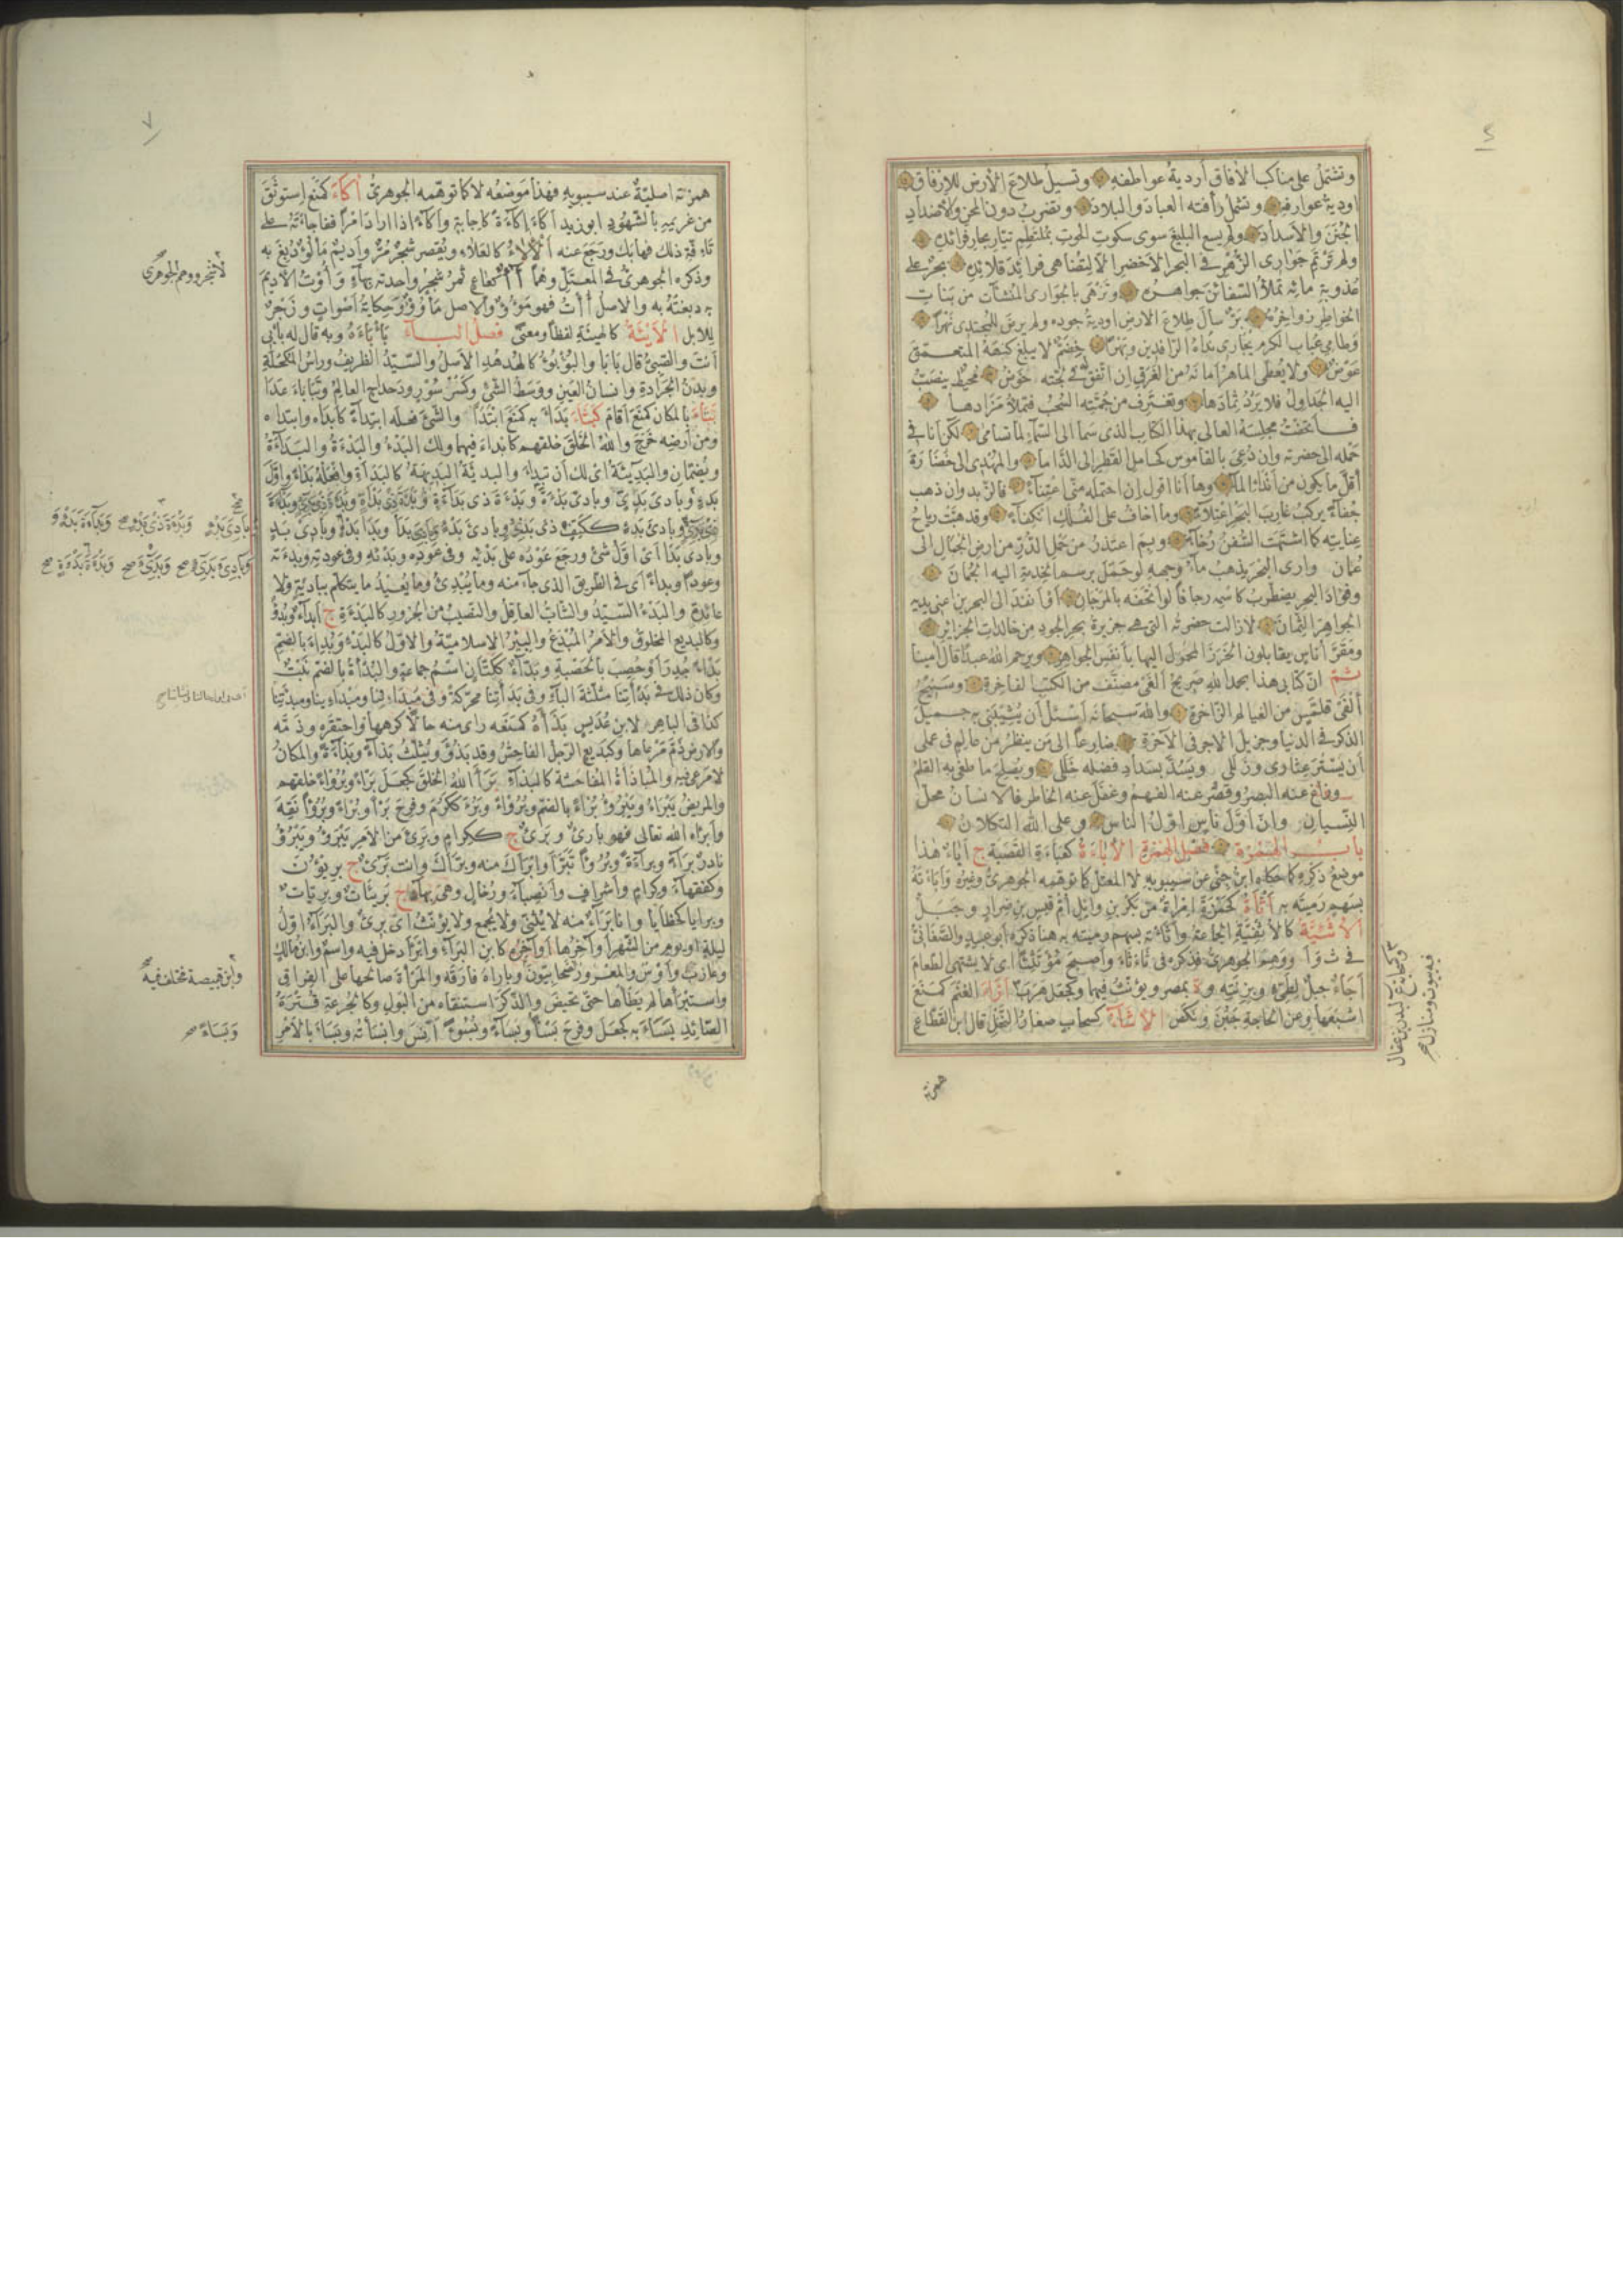 وتشتمل على مناكب الآفاق أردية عواطفه وتسيل طلاع الأرض للإرفاق
أودية عوارفه وتشمل رأفته العباد والبلاد وتضرب دون المحن والأضداد
الجنن والأسداد ولم يسع البليغ سوى سكوت الحوت بملتطم تيار بحار فوائده
ولم ترتم جوارى الزهر فى البحر الأخضر إلا لتضاهى فرائد قلائده بحر على
عذوبة مائه تملأ السفائن جواهره وتزهى بالجوارى المنشآت من بنات
الخواطر زواخره بر سال طلاع الأرض أودية جوده ولم يرض للمجتدى نهرا
وطامى عباب الكرم يجارى نداه الرافدين وبهرا خضم لا يبلغ كنهه المتعمق
عوض ولا يعطى الماهر أمانه من الغرق إن اتفق له فى لجته خوض محيط ينصب
إليه الجداول فلا يرد ثمادها وتغترف من جمته السحب فتملأ مزادها
فأتحفت مجلسه العالى بهذا الكتاب الذى سما إلى السماء لما تسامى لكن أنا فى
حمله إلى حضرته وإن دعى بالقاموس كحامل القطر إلى الداماء والمهدى إلى خضارة
أقل ما يكون من أنداء الماء وها أنا أقول إن احتمله منى اعتناء فالزبد وإن ذهب
جفاء يركب غارب البحر اعتلاء وما أخاف على الفلك انكفاء وقد هبت رياح
عنايته كما اشتهت السفن رخاء وبم أعتذر من حمل الدر من أرض الجبال إلى
عمان وأرى البحر يذهب ماء وجهه لو حمل برسم الخدمة إليه الجمان
وفؤاد البحر يضطرب كاسمه رجافا لو أتحفه بالمرجان أو أنفذ إلى البحرين أعنى يديه
الجواهر الثمان لا زالت حضرته التى هى جزيرة بحر الجود من خالدات الجزائر
ومقر أناس يقابلون الخرز المحمول إليها بأنفس الجواهر ويرحم الله عبدا قال أمينا
ثم إن كتابى هذا بحمد الله صريح ألفى مصنف من الكتب الفاخرة وسنيح
ألفى قلمس من العيالم الزاخرة والله سبحانه أسئل أن يثيبنى به جميل
الذكر فى الدنيا وجزيل الأجر فى الآخرة ضارعا إلى من ينظر من عالم فى عملى
أن يستر عثارى وزللى ويسد بسداد فضله خللى ويصلح ما طغى به القلم
وزاغ عنه البصر وقصر عنه الفهم وغفل عنه الخاطر فالإنسان محل
النسيان وإن أول ناس أول الناس وعلى الله التكلان
باب الهمزة فصل الهمزة الأباءة كعباءة القصبة ج أباء هذا
موضع ذكره كما حكاه ابن جنى عن سيبويه لا المعتل كما توهمه الجوهرى وغيره وأبأته
بسهم رميته به أثأة كحمزة امرأة من بكر بن وائل أم قيس بن ضرار وجبل
الأثئية كالأثفية الجماعة وأثأته بسهم رميته به هنا ذكره أبو عبيد والصغانى
فى ث و أ ووهم الجوهرى فذكره فى ثأثأ وأصبح مؤتثئا أى لا يشتهى الطعام
أجأ جبل لطيئ وبزنته وة بمصر ويؤنث فيهما وكجعل هرب أزأ الغنم كمنع
أشبعها وعن الحاجة جبن ونكص الأشاء كسحاب صغار النخل قال ابن القطاع
همزته
همزته أصلية عند سيبويه فهذا موضعه لا كما توهمه الجوهرى أكأ كمنع استوثق
من غريمه بالشهود أبو زيد أكأ إكاءة كإجابة وأكاء إذا أراد أمرا ففاجأته على
تئفة ذلك فهابك ورجع عنه الألاء كالعلاء ويقصر شجر مر وأديم مألوء دبغ به
وذكره الجوهرى فى المعتل وهما آء كعاع ثمر شجر واحدته بهاء وأؤت الأديم
به دبغته به والأصل أأت فهو مؤوء والأصل مأووء وحكاية أصوات وزجر
للإبل الأيئة كالهيئة لفظا ومعنى فصل الباء بأبأه وبه قال له بأبى
أنت والصبى قال بابا والبؤبؤ كالهدهد الأصل والسيد الظريف ورأس المكحلة
وبدن الجرادة وإنسان العين ووسط الشئ وكسرسور ودحداح العالم وتبأبأ عدا
بتأ بالمكان كمنع أقام كبثأ بدأ به كمنع ابتدأ والشئ فعله ابتداء كأبدأه وابتدأه
ومن أرضه خرج والله الخلق خلقهم كأبدأ فيهما ولك البدء والبدءة والبداءة
ويضمان والبديئة أى لك أن تبدأ والبديئة البديهة كالبداءة وافعله بدءا وأول
وبادى بدا أى أول شئ ورجع عوده على بدئه وفى عوده وبدئه وفى عودته وبدءته
وعودا وبدءا أى فى الطريق الذى جاء منه وما يبدئ وما يعيد ما يتكلم ببادئة ولا
عائدة والبدء السيد والشاب العاقل والنصيب من الجزور كالبدءة ج أبداء وبدو
وكالبديع المخلوق والأمر المبدع والبئر الإسلامية والأول كالبدء وبدئ بالضم
بدءا جدر أو حصب بالحصبة وبداء ككتان اسم جماعة والبدأة بالضم نبت
وكان ذلك فى بدأتنا مثلثة الباء وفى بدأتنا محركة وفى مبدئنا ومبدأنا
كذا فى الباهر لابن عديس بذأه كمنعه رأى منه حالا كرهها واحتقره وذمه
والأرض ذم مرعاها وكبديع الرجل الفاحش وقد بذؤ ويثلث بذاء وبذاءة والمكان
لا مرعى فيه والمباذأة المفاحشة كالبذاء برأ الله الخلق كجعل برءا وبروءا خلقهم
والمريض يبرأ ويبرؤ برءا بالضم وبروءا وبرؤ ككرم وفرح برءا وبرءا وبروءا نقه
وأبرأه الله تعالى فهو بارئ وبرئ ج ككرام وبرئ من الأمر يبرأ ويبرؤ
نادر براء وبراءة وبروءا تبرأ وأبرأك منه وبرأك وأنت برئ ج بريؤن
وكفقهاء وكرام وأشراف وأنصباء ورخال وهى بهاء ج بريئات وبريات
وبرايا كخطايا وأنا براء منه لا يثنى ولا يجمع ولا يؤنث أى برئ والبراء أول
ليلة أو يوم من الشهر أو آخرها أو آخره كابن البراء وأبرأ دخل فيه واسم وابن مالك
وعازب وأوس والمعرور صحابيون وبارأه فارقه والمرأة صالحها على الفراق
واستبرأها لم يطأها حتى تحيض والذكر استنقاه من البول وكالجرعة قترة
الصائد بسأ به كجعل وفرح بسأ وبسأ وبساء وبسوءا أنس وأبسأته وبسأ بالأمر
لا شجر ووهم الجوهرى
وابن قبيصة مختلف فيه
وبساء صح